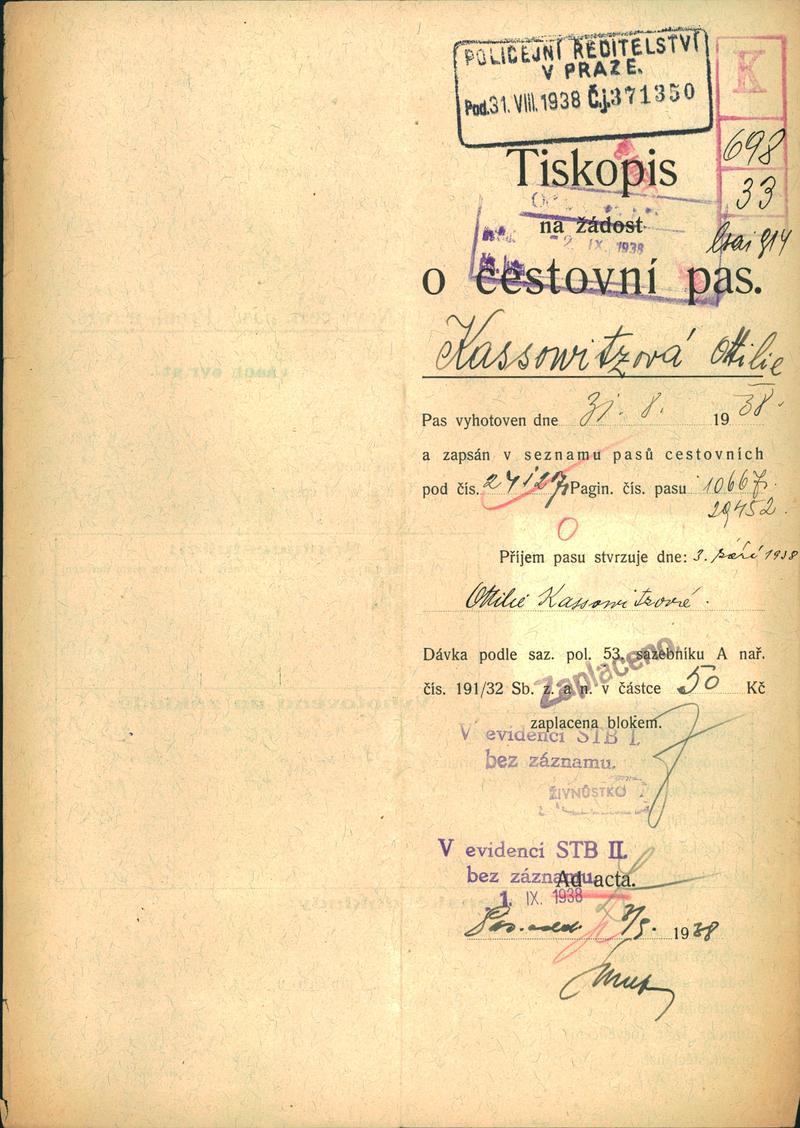 POLICEJNÍ ŘEDITELSTVÍ
V PRAZE.
Pod. 31. VIII. 1938 Č.j. 371350
K
698
33
Tiskopis
na žádost
- 2. IX. 1938
o cestovní pas.
Kassowitzová Ottilie
Pas vyhotoven dne 31. 8. 1938.
a zapsán v seznamu pasů cestovních
pod čís. 24127 Pagin. čís. pasu 10667
29452.
Příjem pasu stvrzuje dne: 3. září 1938
Ottilie Kassowitzová.
Dávka podle saz. pol. 53. sazebníku A nař.
Zaplaceno
čís. 191/32 Sb. z. a n. v částce 50 Kč
zaplacena blokem.
V evidenci STB I.
bez záznamu.
ŽIVNŮSTKO
V evidenci STB II.
bez záznamu.
Ad acta.
1. IX. 1938
1938